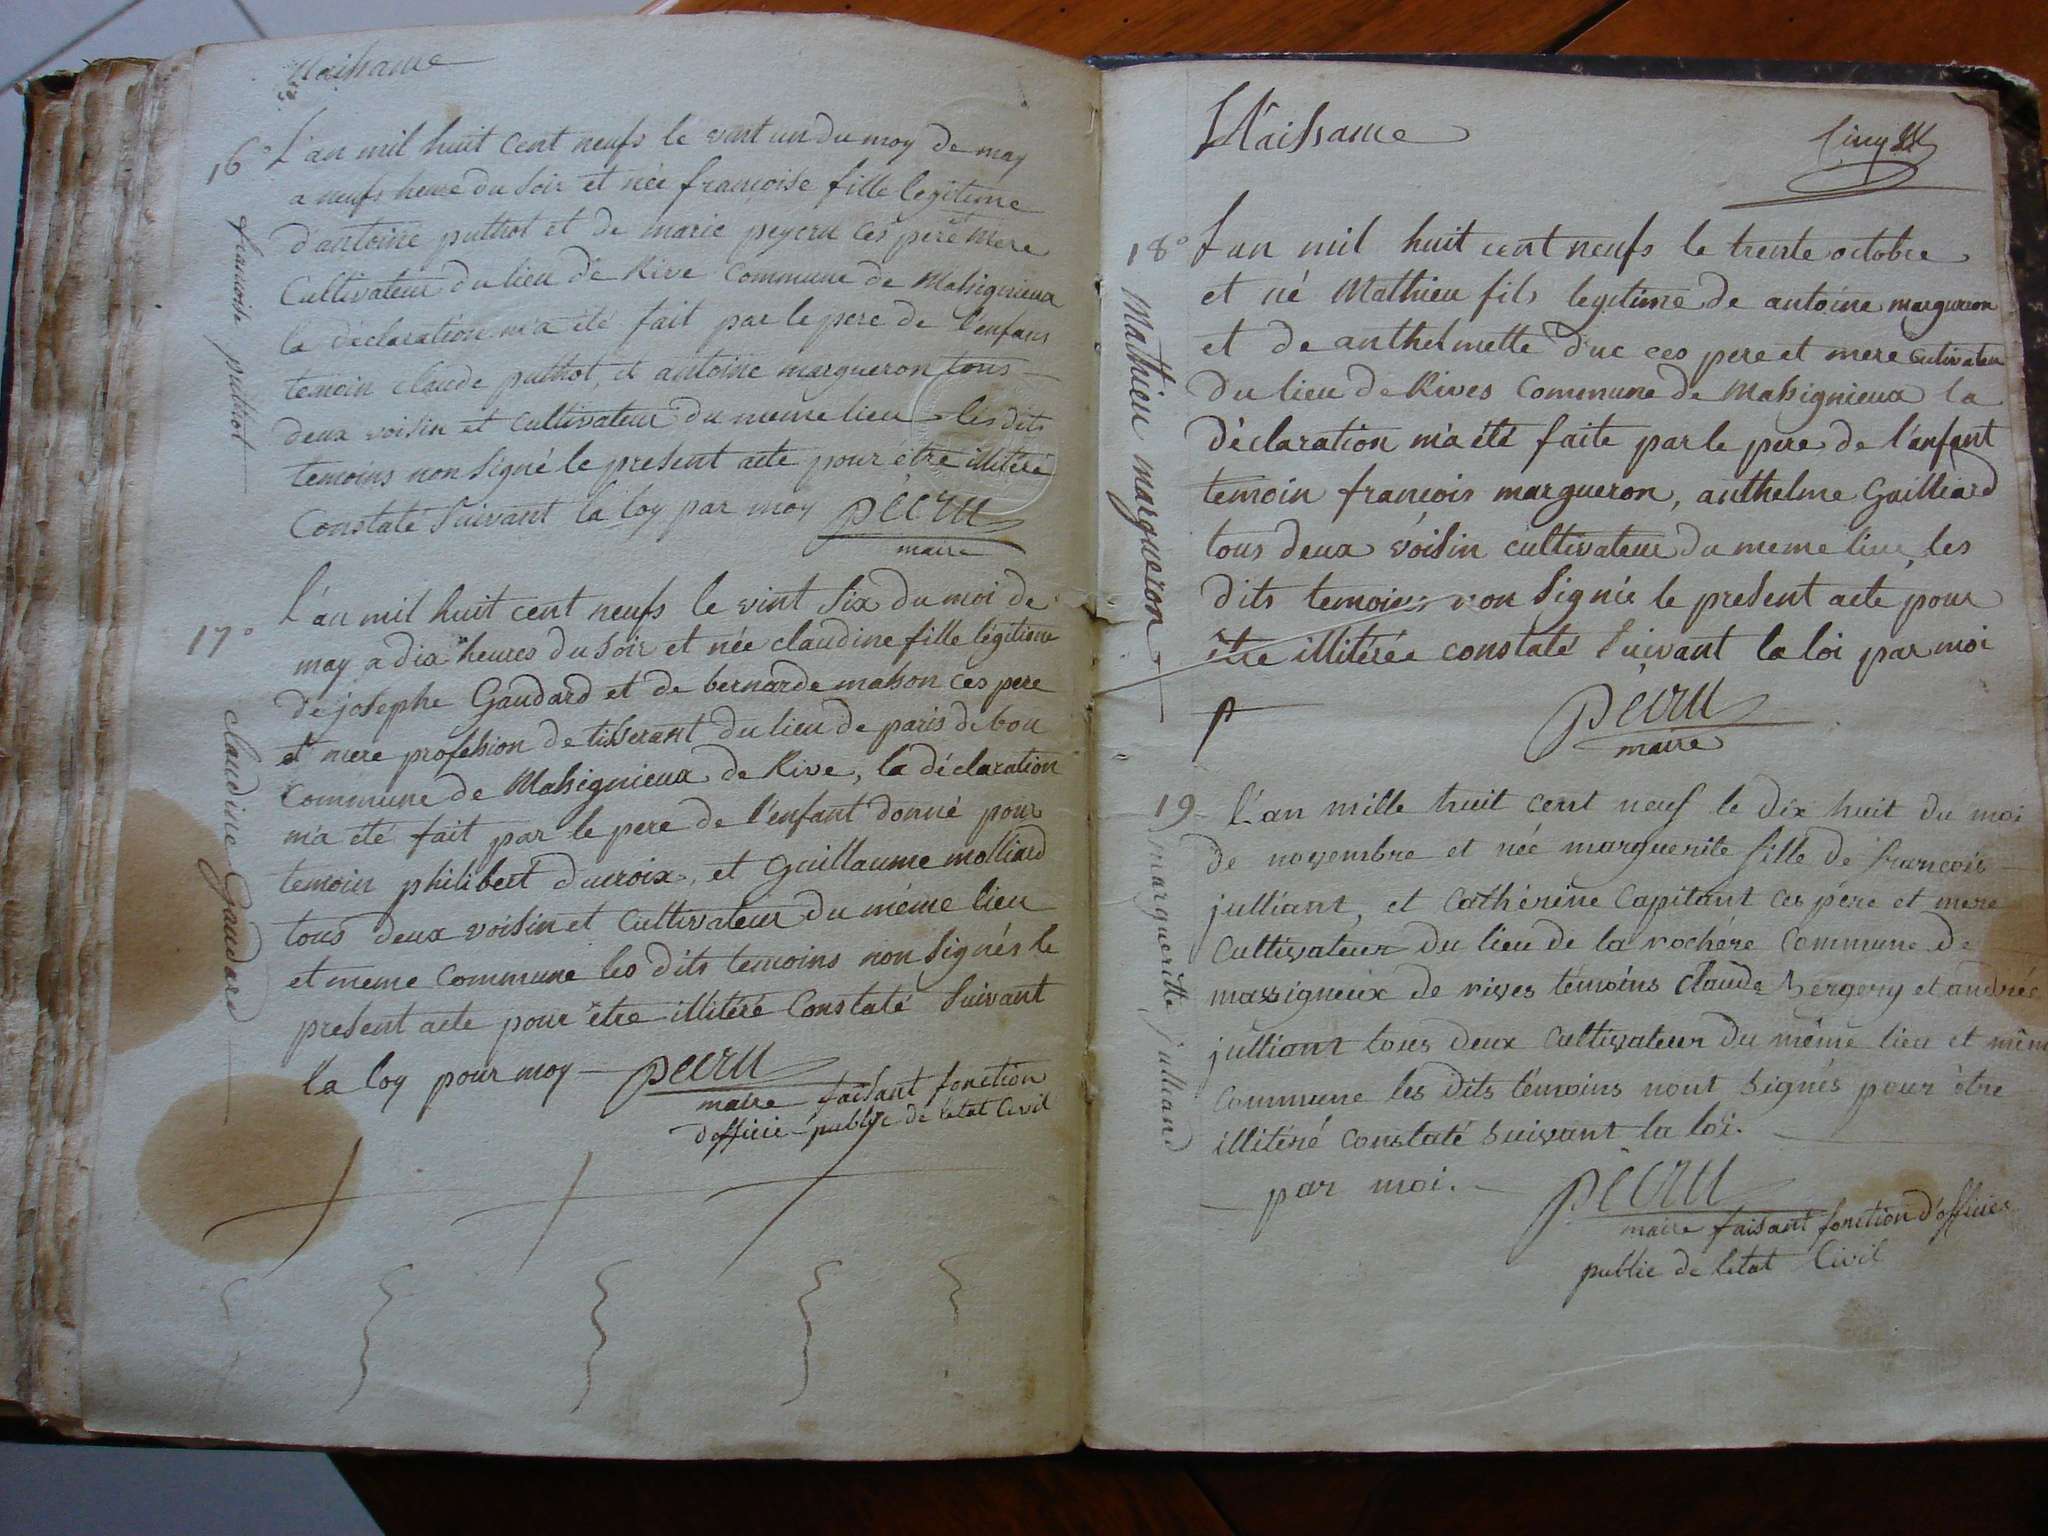 Naissance
16°
françoise puthot
L'an mil huit cent neufs le vint un du moy de may
a neufs heure du soir et née françoise fille legitime
d'antoine puthot et de marie peycru ces pere mere
Cultivateur du lieu de Rive Commune de Massignieux
la déclaration m'a été fait par le pere de l'enfans
temoin claude puthot, et antoine margueron tous
deux voisin et cultivateur du meme lieu les dits
temoins non signé le present acte pour être illitéré
Constaté suivant la loy par moy pécru
maire
17°
claudine Gaudard
L'an mil huit cent neufs le vint six du moi de
may a dix heures du soir et née claudine fille légitime
de josephe Gaudard et de bernarde masson ces pere
et mere profession de tisserant du lieu de paris de bon
Commune de Massignieux de Rive, la déclaration
m'a été fait par le pere de l'enfant donné pour
temoin philibert ducroix, et Guillaume molliard
tous deux voisin et cultivateur du même lieu
et meme commune les dits temoins non signés le
present acte pour être illitéré Constaté suivant
la loy pour moy pécru
maire faisant fonction
d'officié public de l'etat Civil
Naissance
18°
Mathieu margueron
L'an mil huit cent neufs le trente octobre
et né Mathieu fils legitime de antoine margueron
et de anthelmette duc ces pere et mere cultivateur
du lieu de Rives Commune de Massignieux la
déclaration m'a été faite par le pere de l'enfant
temoin françois margueron, anthelme Guilliard
tous deux voisin cultivateur du meme lieu, les
dits temoins non signié le present acte pour
être illitérée constaté suivant la loi par moi
pécru
maire
19
margueritte julliand
L'an mille huit cent neuf le dix huit du moi
de novembre et née marguerite fille de francois
julliant, et cathérine Capitant ces père et mere
cultivateur du lieu de la rochére commune de
massigneux de rives témoins claude bergery et andrée
julliant tous deux cultivateur du même lieu et mêm
commune les dits témoins nont signés pour être
illitéré constaté suivant la loi.
par moi. pécru
maire faisant fonction d'officier
public de l'etat Civil